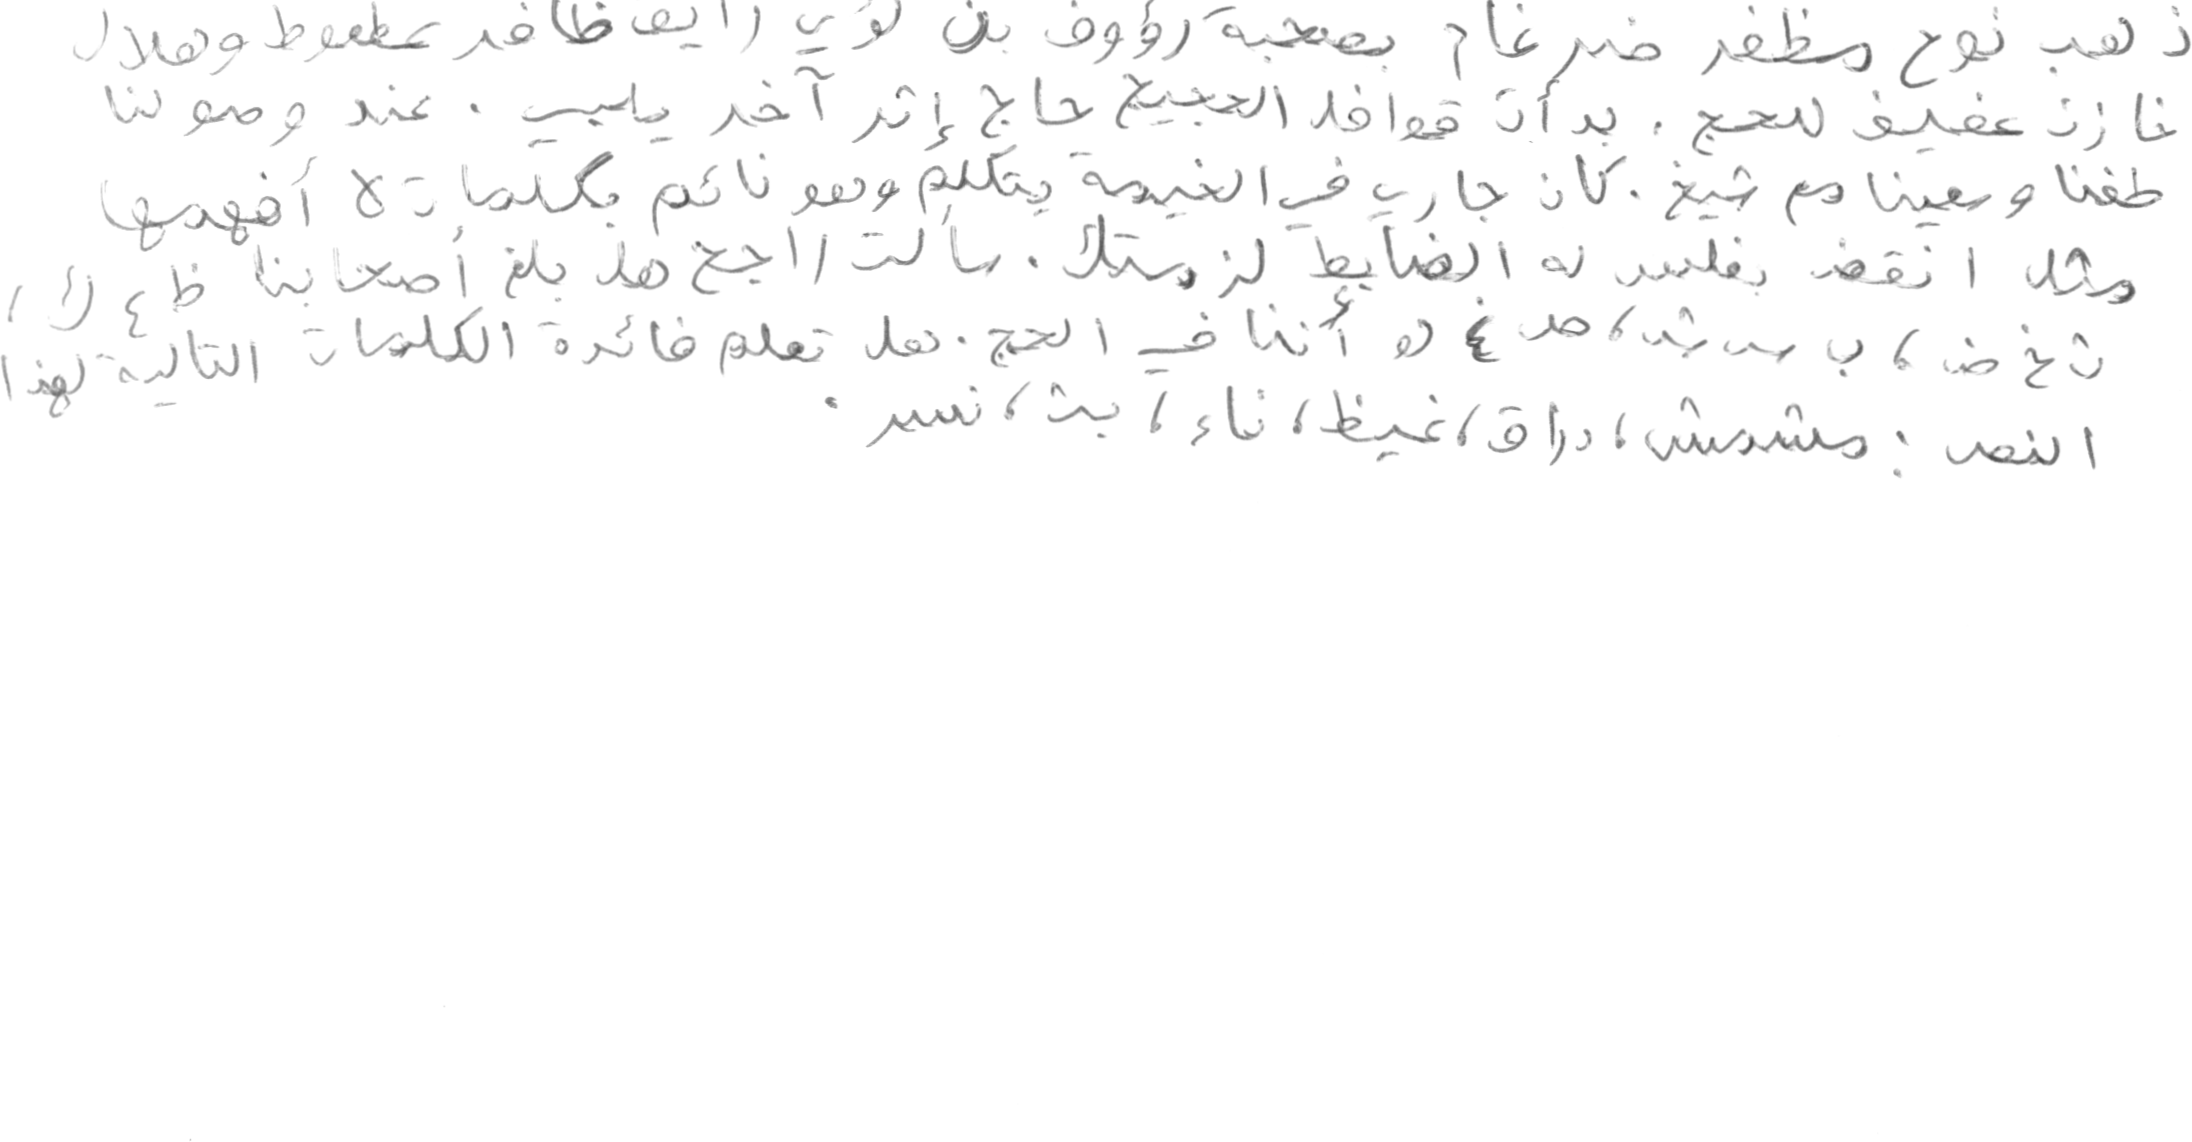 ذهب نوح مظفر ضرغام بصحبة رؤوف بن لؤي رايف ظافر عطعوط وهلال
غازن عفيف للحج . بدأت قوافل الحجيج حاج إثر آخر يلبي . عند وصولنا
طفنا وسعينا مع شيخ . كان جاري في الخيمة يتكلم وهو نائم بكلمات لا أفهمها
مثل انقض بفلس له الضابط لزمتك . سألت راجح هل بلغ أصحابنا ظ ع ك ،
ث خ ض ، ب س ش ، ص غ ه أننا في الحج . هل تعلم فائدة الكلمات التالية لهذا
النص : مشمش ، دراق ، غيظ ، ناء ، بث ، نسر .